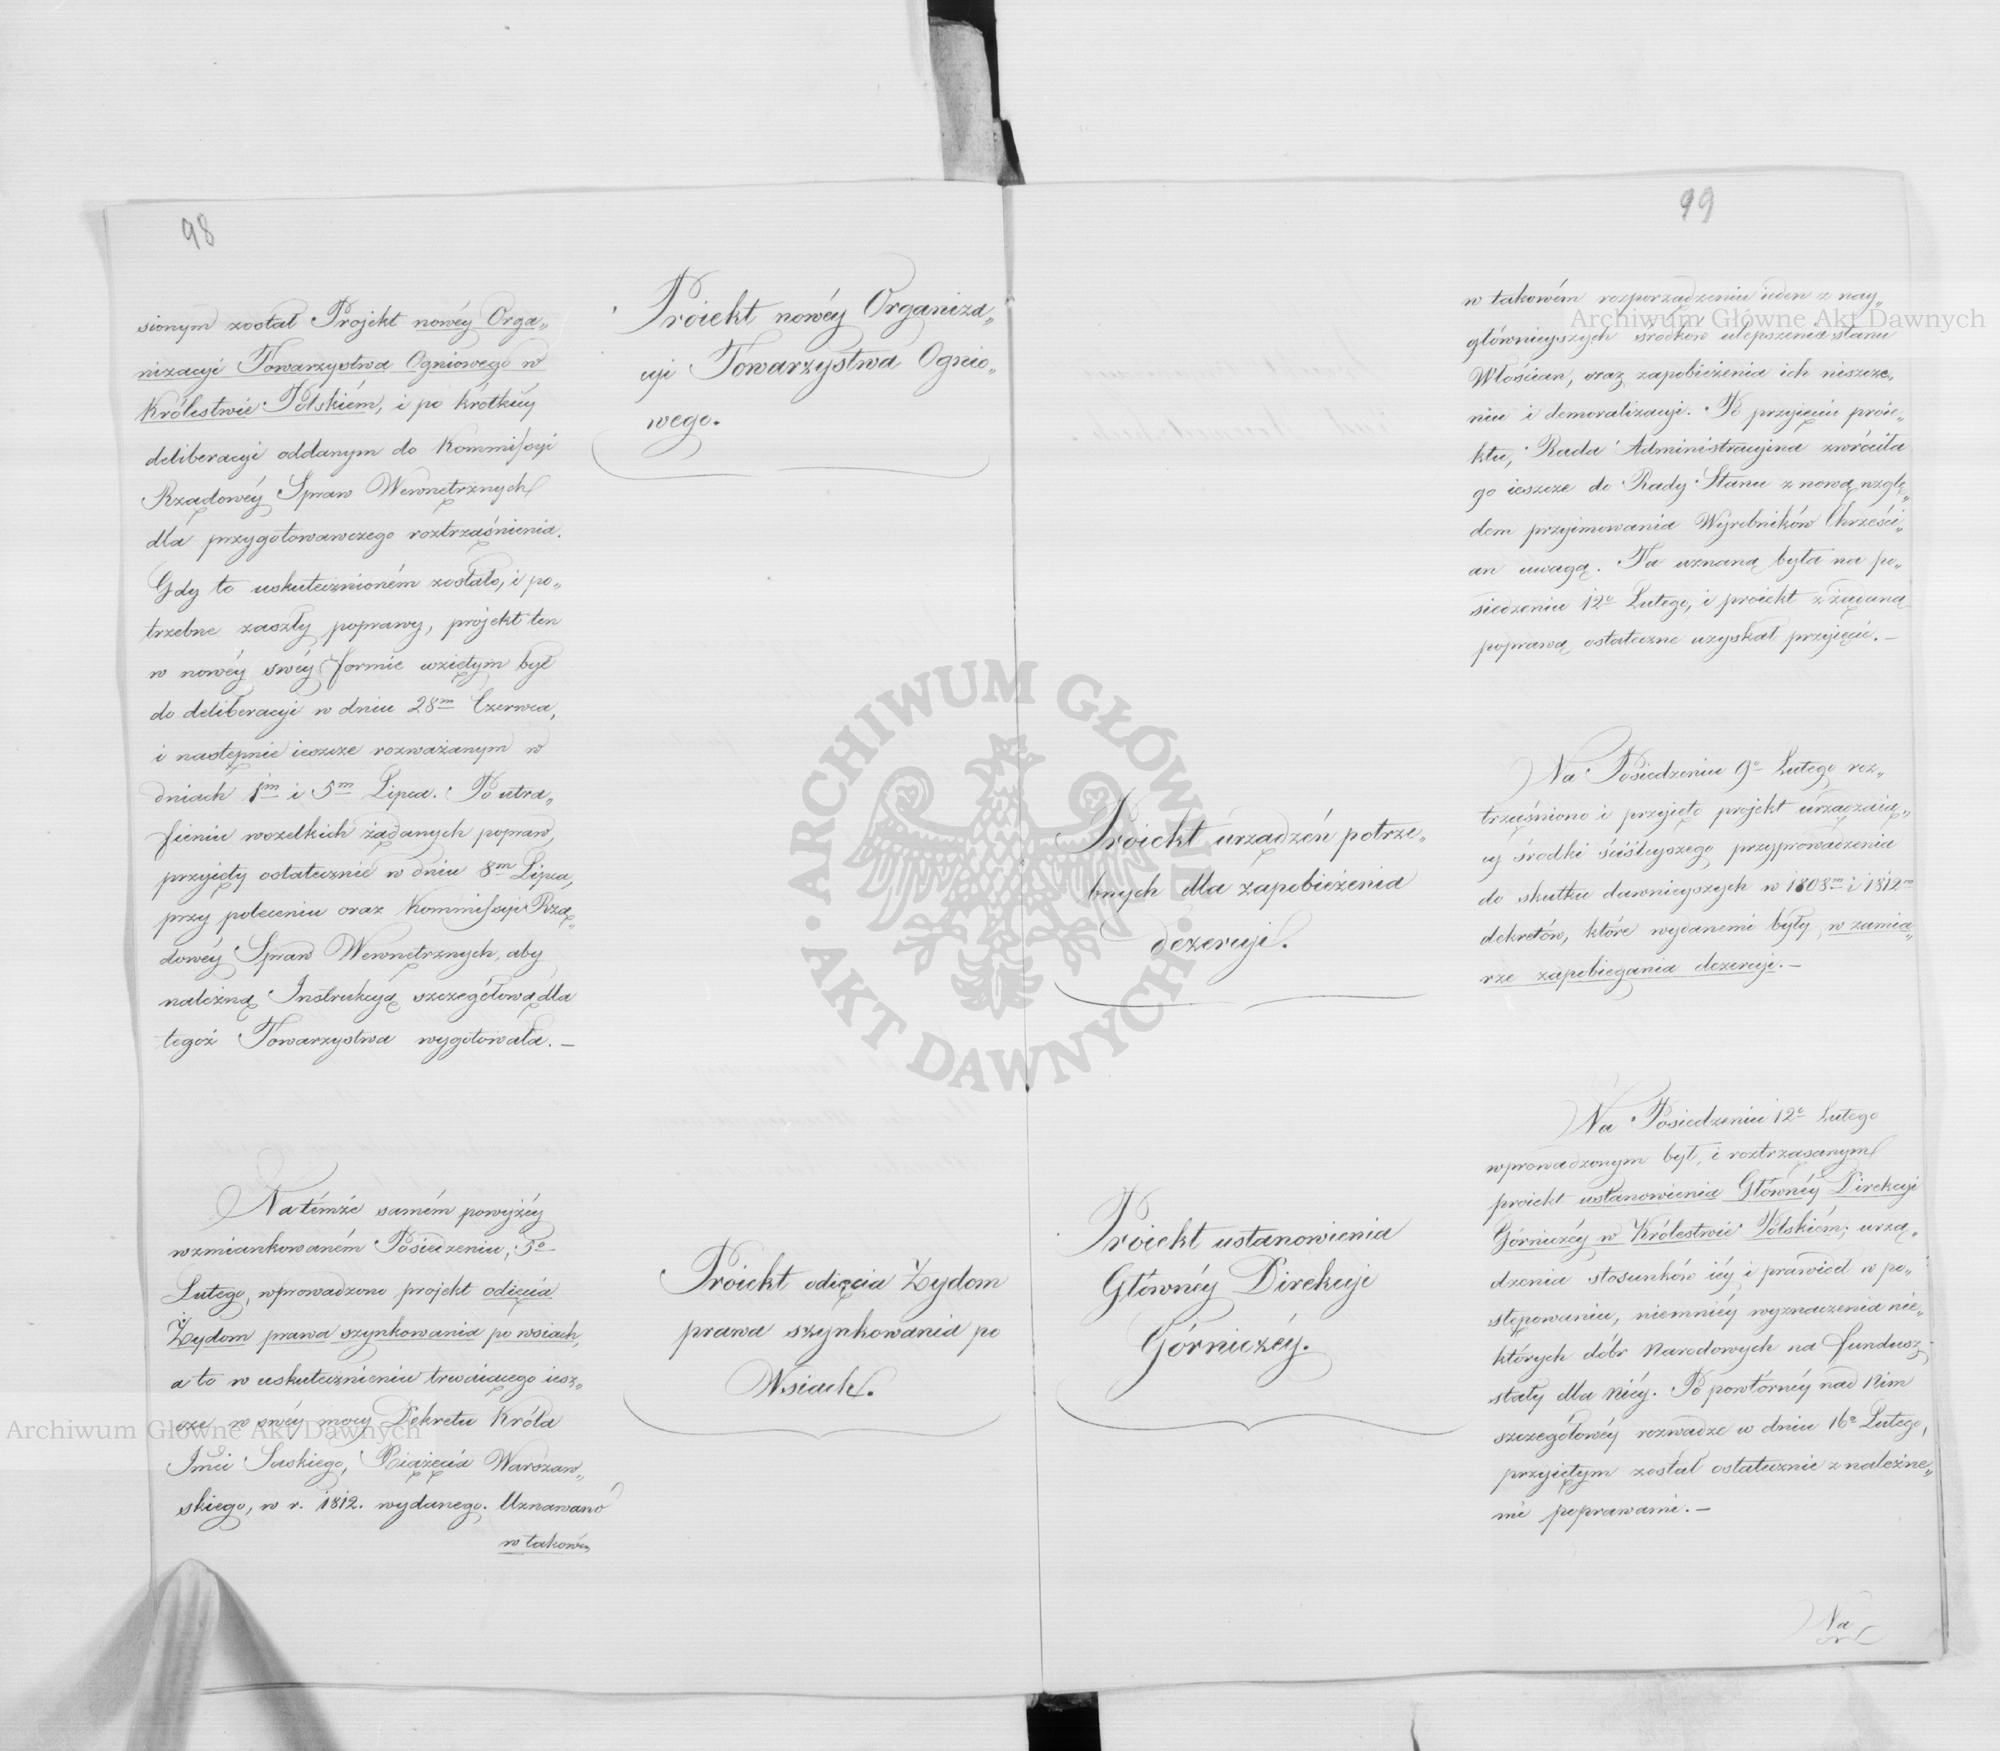 98
sionym został Projekt nowéy Orga„
nizacyi Towarzystwa Ogniowego w
Królestwie Polskiém, i po krótkiéy
deliberacyi oddanym do Kommissyi
Rządowéy Spraw Wewnętrznych
dla przygotowawczego roztrząśnienia.
Gdy to uskutecznioném zostało, i po„
trzebne zaszły poprawy, projekt ten
w nowéy swéy formie wziętym był
do deliberacyi w dniu 28m Czerwca,
i następnie ieszcze rozważanym w
dniach 1m i 5m Lipca. Po utra„
fieniu wszelkich żądanych popraw,
przyięty ostatecznie w dniu 8m Lipca,
przy poleceniu oraz Kommissyi Rzą„
dowéy Spraw Wewnętrznych, aby
należną Instrukcyą szczegółową dla
tegoż Towarzystwa wygotowała. —
Proiekt nowéy Organiza„
cyi Towarzystwa Ognio„
wego.
Na témże samém powyżéy
wzmiankowaném Posiedzeniu, 5o
Lutego, wprowadzono projekt odięcia
Żydom prawa szynkowania po wsiach,
a to w uskutecznieniu trwaiącego iesz„
cze w swéy mocy Dekretu Króla
Jmci Saskiego, Xiążęcia Warszaw„
skiego, w r. 1812. wydanego. Uznawano
w takowém
Proiekt odięcia Żydom
prawa szynkowania po
Wsiach.
99
w takowém rozporządzeniu ieden z nay„
głównieyszych środków ulepszenia stanu
Włościan, oraz zapobieżenia ich niszcze„
niu i demoralizacyi. Po przyięciu proie„
ktu, Rada Administracyina zwróciła
go ieszcze do Rady Stanu z nową wzglę„
dem przyimowania Wyrobników Chrześci„
an uwagą. Ta uznaną była na po„
siedzeniu 12o Lutego, i proiekt z żądaną
poprawą ostateczne uzyskał przyięcie. —
Na Posiedzeniu 9o Lutego roz„
trząśniono i przyięto projekt urządzaią„
cy środki ściśleyszego przyprowadzenia
do skutku dawnieyszych w 1808m i 1812m
dekretów, które wydanemi były w zamia„
rze zapobiegania dezercyi. —
Proiekt urządzeń potrze„
bnych dla zapobieżenia
dezercyi.
Na Posiedzeniu 12o Lutego
wprowadzonym był, i roztrząsanym
proiekt ustanowienia Głównéy Direkcyi
Górniczéy w Królestwie Polskiém; urzą„
dzenia stosunków iéy i prawideł w po„
stępowaniu, niemniéy wyznaczenia nie„
których dóbr Narodowych na fundusz
stały dla niéy. Po powtórnéy nad nim
szczegółowéy rozwadze w dniu 16o Lutego,
przyiętym został ostatecznie z należne„
mi poprawami. —
Proiekt ustanowienia
Głównéy Direkcyi
Górniczéy.
Na
Archiwum Główne Akt Dawnych
ARCHIWUM GŁÓWNE AKT DAWNYCH
Archiwum Główne Akt Dawnych